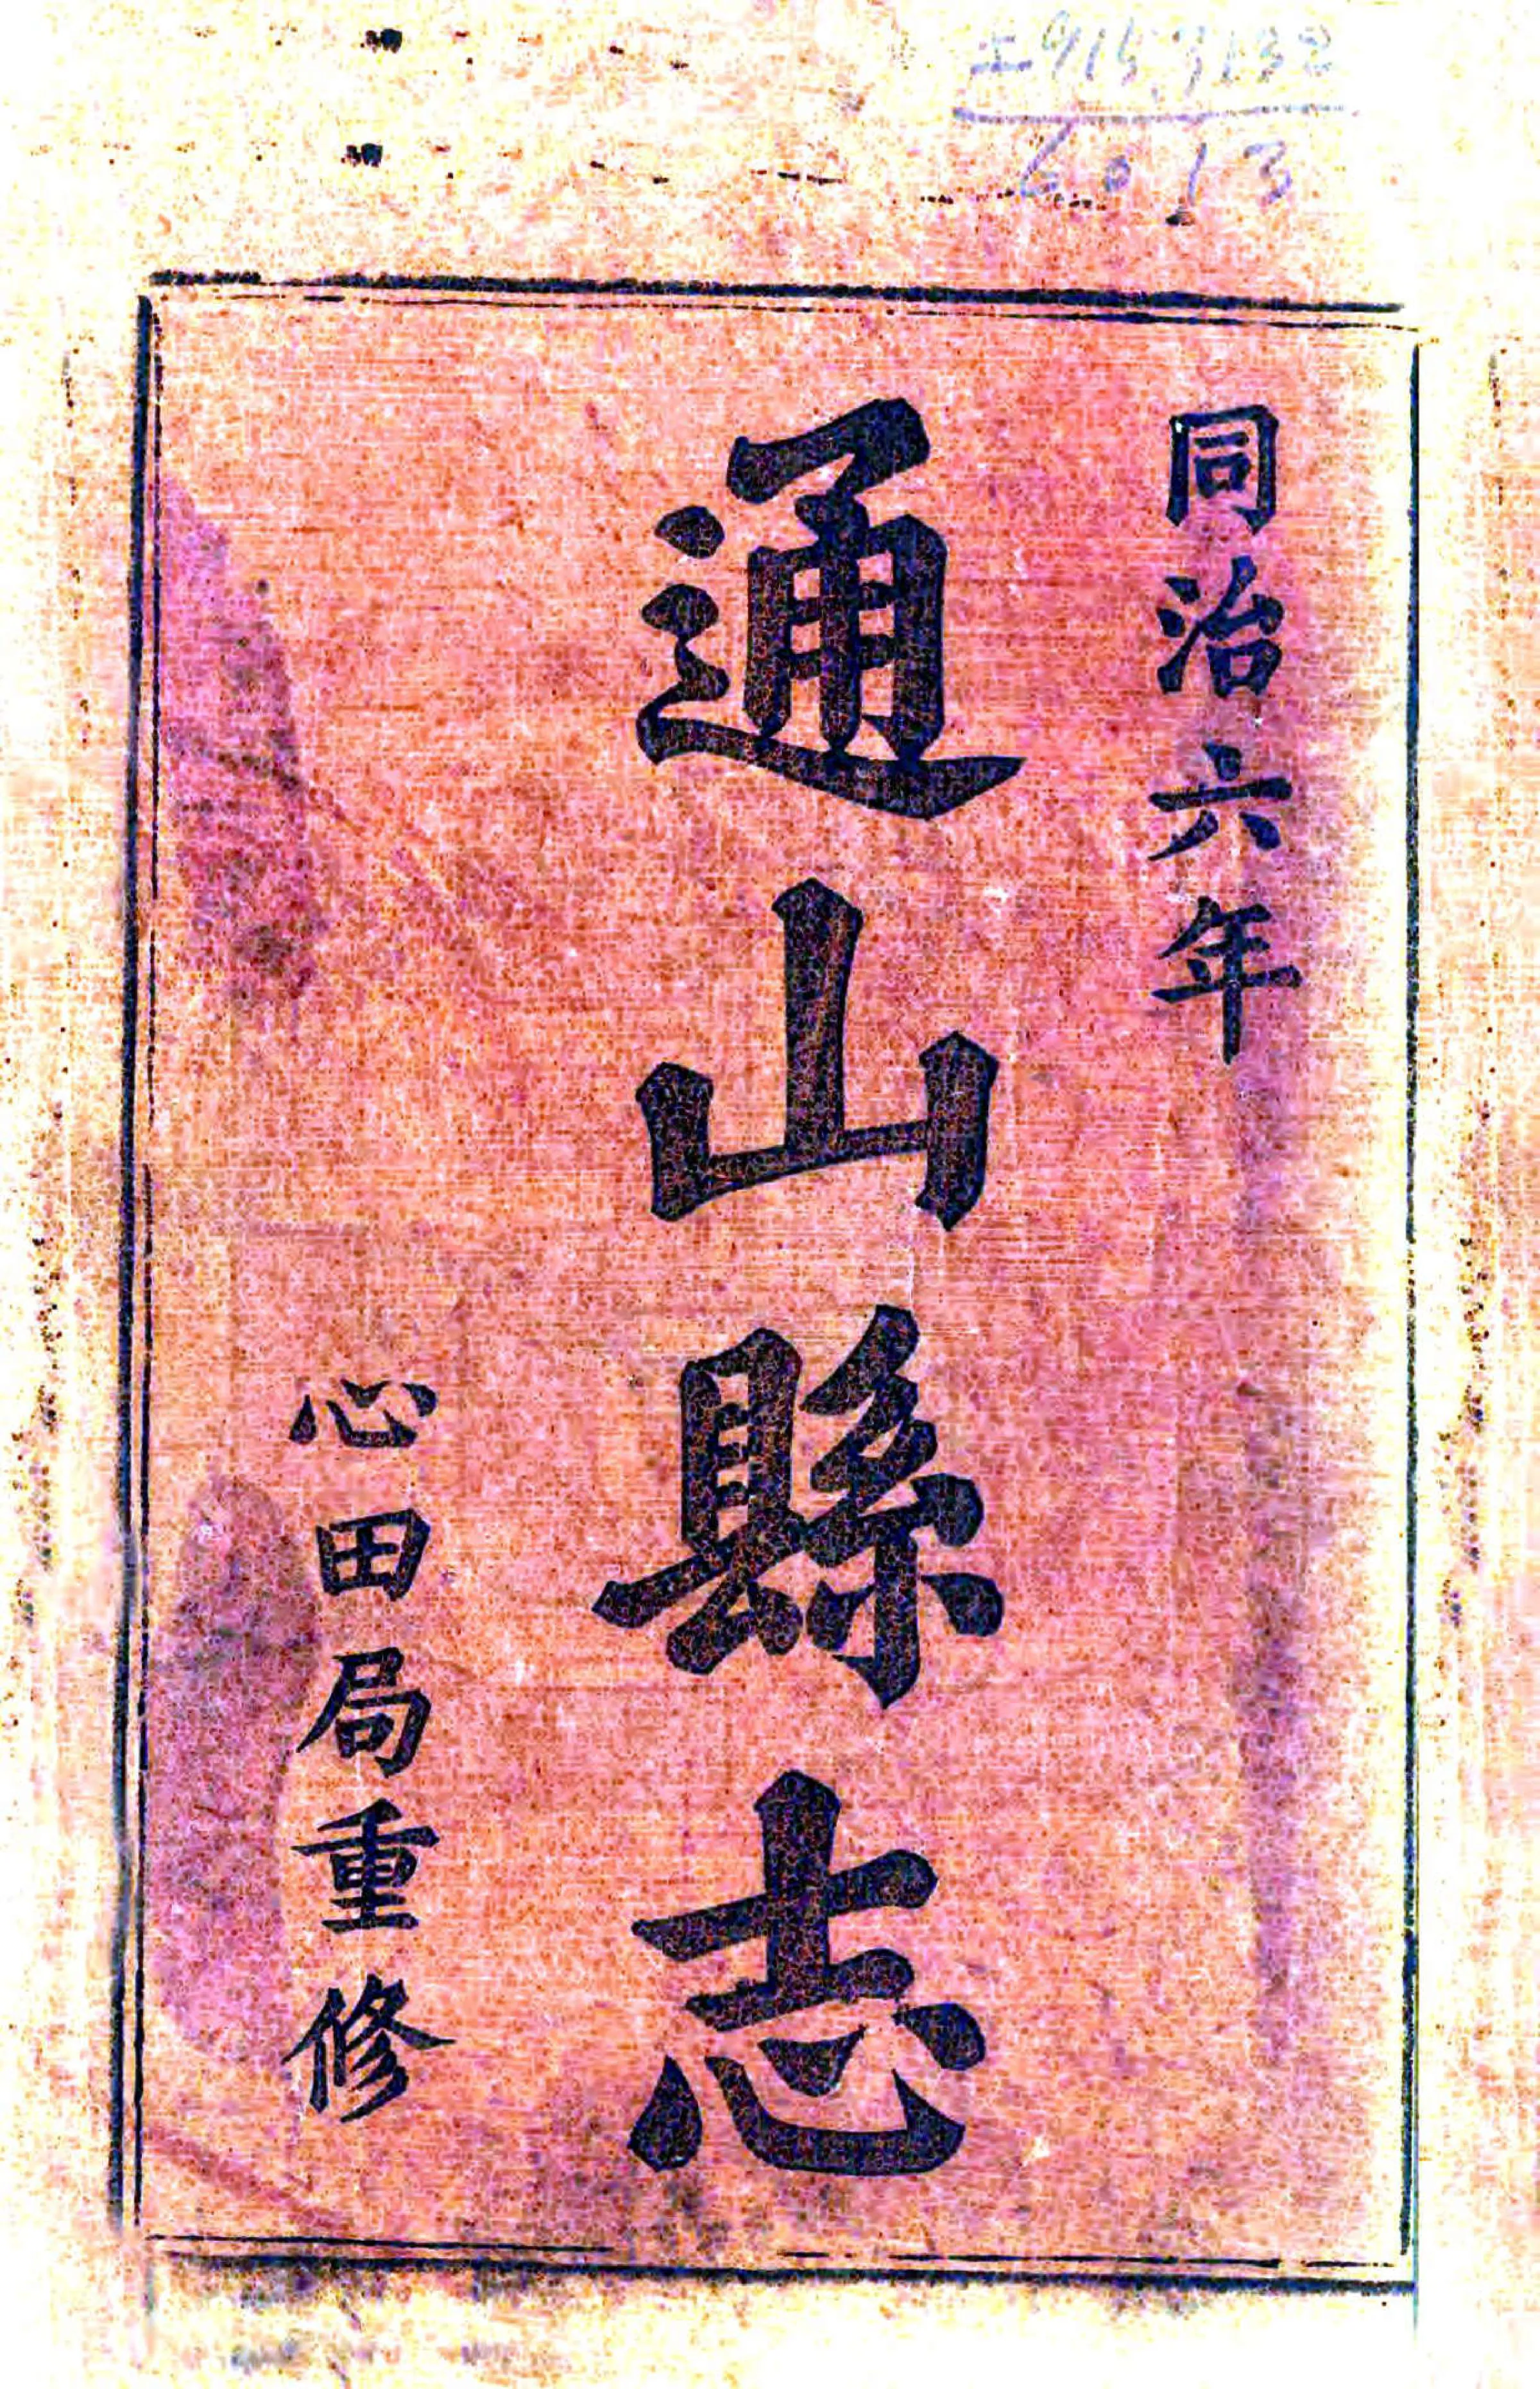 同治六年
通山縣志
心田局重修
6013